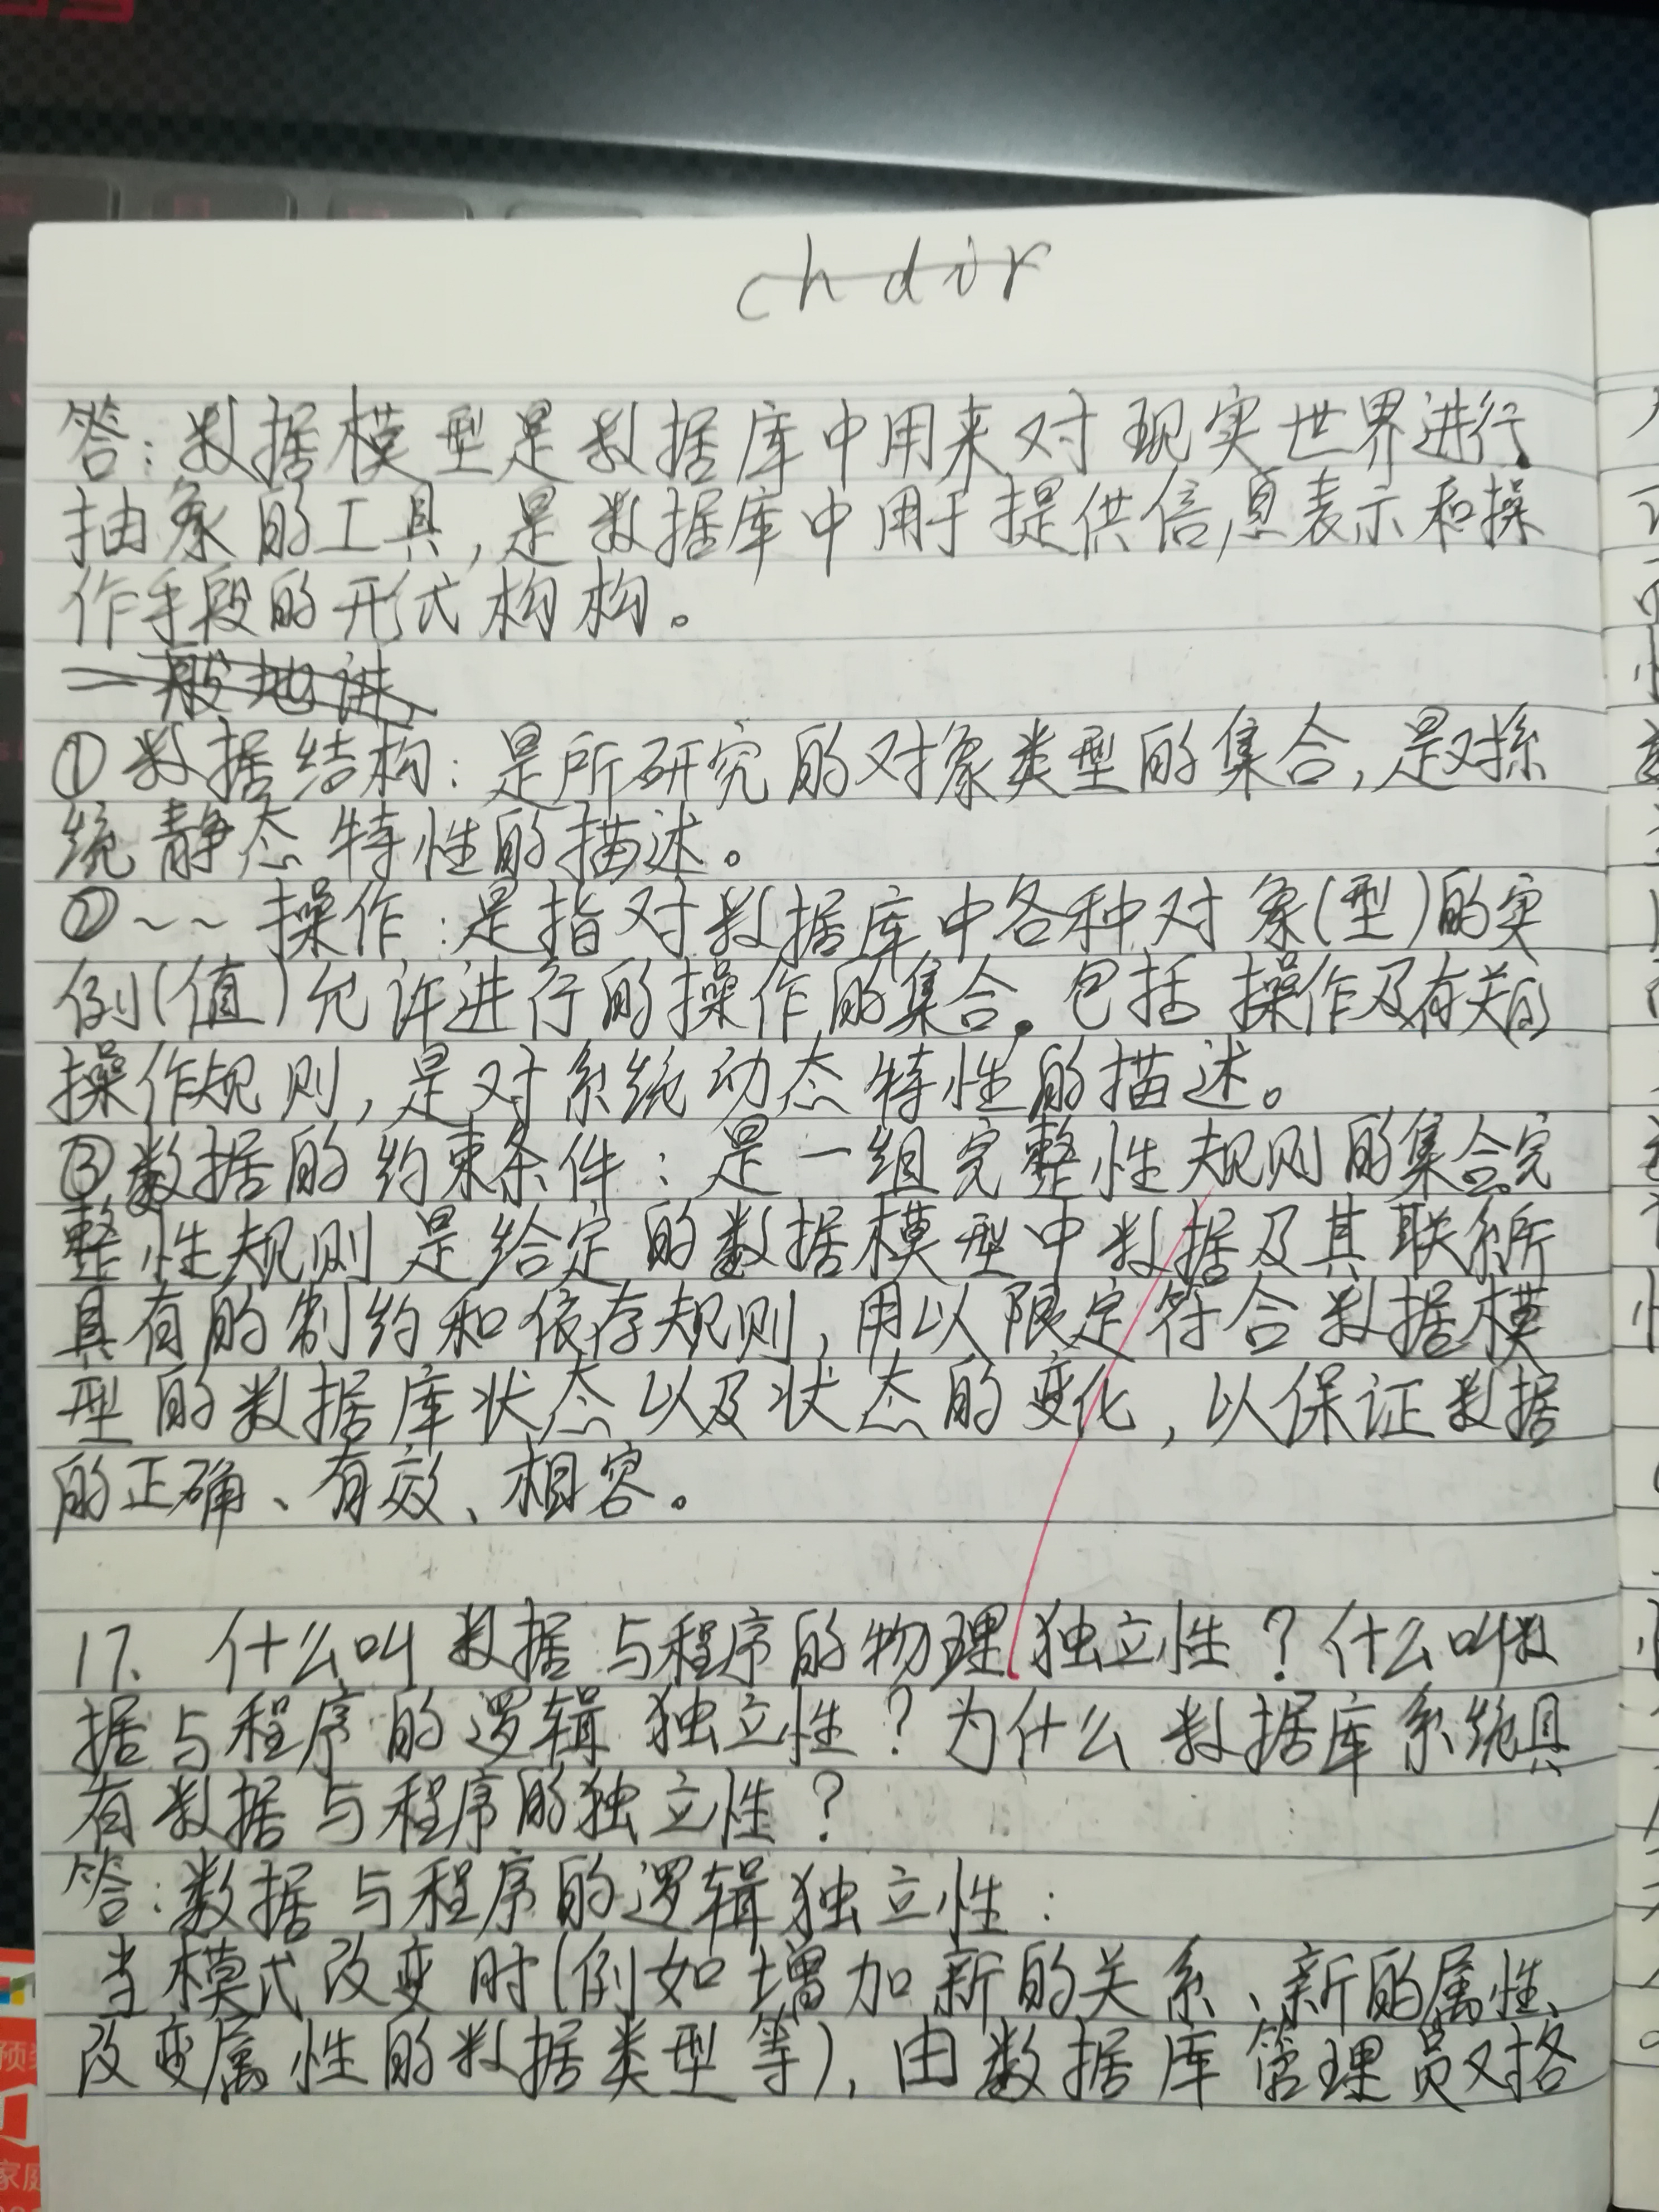 chdir
答:数据模型是数据库中用来对现实世界进行
抽象的工具,是数据库中用于提供信息表示和操
作手段的形式构构。
一般地讲,
①数据结构:是所研究的对象类型的集合,是对系
统静态特性的描述。
②~~操作:是指对数据库中各种对象(型)的实
例(值)允许进行的操作的集合。包括操作及有关的
操作规则,是对系统动态特性的描述。
③数据的约束条件:是一组完整性规则的集合。完
整性规则是给定的数据模型中数据及其联系所
具有的制约和依存规则,用以限定符合数据模
型的数据库状态以及状态的变化,以保证数据
的正确、有效、相容。
17. 什么叫数据与程序的物理独立性?什么叫数
据与程序的逻辑独立性?为什么数据库系统具
有数据与程序的独立性?
答:数据与程序的逻辑独立性:
当模式改变时(例如增加新的关系、新的属性、
改变属性的数据类型等),由数据库管理员对各